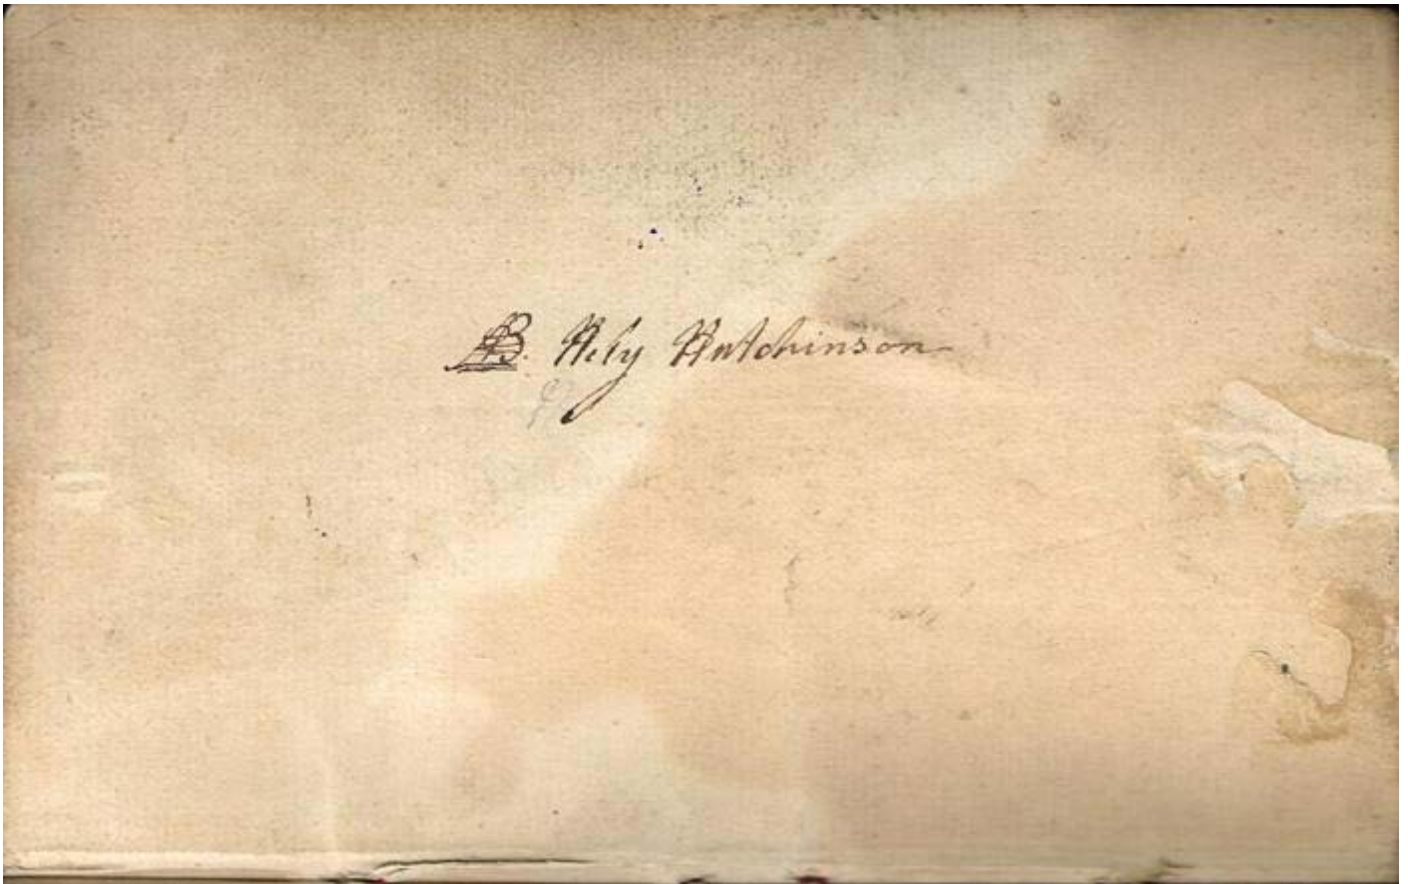 B. Hely Hutchinson